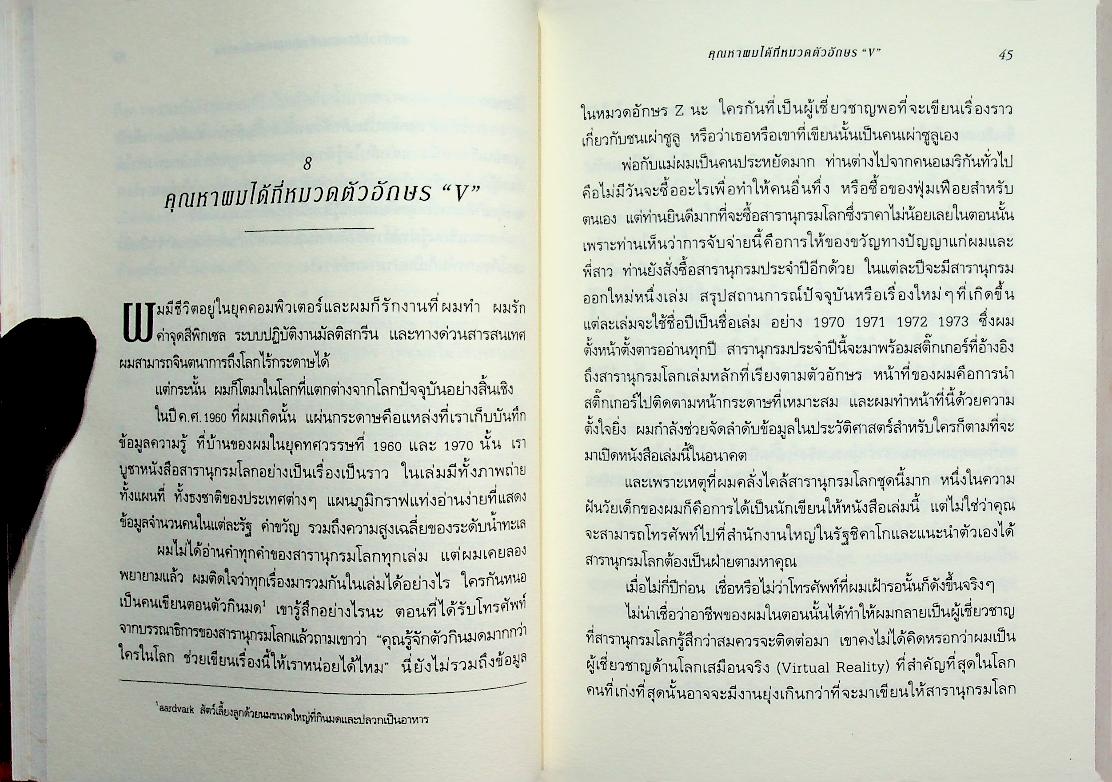 8
คุณหาผมได้ที่หมวดตัวอักษร “V”
ผมมีชีวิตอยู่ในยุคคอมพิวเตอร์และผมก็รักงานที่ผมทำ ผมรัก
ค่าจุดสีพิกเซล ระบบปฏิบัติงานมัลติสกรีน และทางด่วนสารสนเทศ
ผมสามารถจินตนาการถึงโลกไร้กระดาษได้
แต่กระนั้น ผมก็โตมาในโลกที่แตกต่างจากโลกปัจจุบันอย่างสิ้นเชิง
ในปี ค.ศ. 1960 ที่ผมเกิดนั้น แผ่นกระดาษคือแหล่งที่เราเก็บบันทึก
ข้อมูลความรู้ ที่บ้านของผมในยุคทศวรรษที่ 1960 และ 1970 นั้น เรา
บูชาหนังสือสารานุกรมโลกอย่างเป็นเรื่องเป็นราว ในเล่มมีทั้งภาพถ่าย
ทั้งแผนที่ ทั้งธงชาติของประเทศต่างๆ แผนภูมิกราฟแท่งอ่านง่ายที่แสดง
ข้อมูลจำนวนคนในแต่ละรัฐ คำขวัญ รวมถึงความสูงเฉลี่ยของระดับน้ำทะเล
ผมไม่ได้อ่านคำทุกคำของสารานุกรมโลกทุกเล่ม แต่ผมเคยลอง
พยายามแล้ว ผมติดใจว่าทุกเรื่องมารวมกันในเล่มได้อย่างไร ใครกันหนอ
เป็นคนเขียนตอนตัวกินมด¹ เขารู้สึกอย่างไรนะ ตอนที่ได้รับโทรศัพท์
จากบรรณาธิการของสารานุกรมโลกแล้วถามเขาว่า “คุณรู้จักตัวกินมดมากกว่า
ใครในโลก ช่วยเขียนเรื่องนี้ให้เราหน่อยได้ไหม” นี่ยังไม่รวมถึงข้อมูล
¹aardvark สัตว์เลี้ยงลูกด้วยนมขนาดใหญ่ที่กินมดและปลวกเป็นอาหาร
คุณหาผมได้ที่หมวดตัวอักษร “V” 45
ในหมวดอักษร Z นะ ใครกันที่เป็นผู้เชี่ยวชาญพอที่จะเขียนเรื่องราว
เกี่ยวกับชนเผ่าซูลู หรือว่าเธอหรือเขาที่เขียนนั้นเป็นคนเผ่าซูลูเอง
พ่อกับแม่ผมเป็นคนประหยัดมาก ท่านต่างไปจากคนอเมริกันทั่วไป
คือไม่มีวันจะซื้ออะไรเพื่อทำให้คนอื่นทึ่ง หรือซื้อของฟุ่มเฟือยสำหรับ
ตนเอง แต่ท่านยินดีมากที่จะซื้อสารานุกรมโลกซึ่งราคาไม่น้อยเลยในตอนนั้น
เพราะท่านเห็นว่าการจับจ่ายนี้คือการให้ของขวัญทางปัญญาแก่ผมและ
พี่สาว ท่านยังสั่งซื้อสารานุกรมประจำปีอีกด้วย ในแต่ละปีจะมีสารานุกรม
ออกใหม่หนึ่งเล่ม สรุปสถานการณ์ปัจจุบันหรือเรื่องใหม่ๆที่เกิดขึ้น
แต่ละเล่มจะใช้ชื่อปีเป็นชื่อเล่ม อย่าง 1970 1971 1972 1973 ซึ่งผม
ตั้งหน้าตั้งตารออ่านทุกปี สารานุกรมประจำปีนี้จะมาพร้อมสติ๊กเกอร์ที่อ้างอิง
ถึงสารานุกรมโลกเล่มหลักที่เรียงตามตัวอักษร หน้าที่ของผมคือการนำ
สติ๊กเกอร์ไปติดตามหน้ากระดาษที่เหมาะสม และผมทำหน้าที่นี้ด้วยความ
ตั้งใจยิ่ง ผมกำลังช่วยจัดลำดับข้อมูลในประวัติศาสตร์สำหรับใครก็ตามที่จะ
มาเปิดหนังสือเล่มนี้ในอนาคต
และเพราะเหตุที่ผมคลั่งไคล้สารานุกรมโลกชุดนี้มาก หนึ่งในความ
ฝันวัยเด็กของผมก็คือการได้เป็นนักเขียนให้หนังสือเล่มนี้ แต่ไม่ใช่ว่าคุณ
จะสามารถโทรศัพท์ไปที่สำนักงานใหญ่ในรัฐชิคาโกและแนะนำตัวเองได้
สารานุกรมโลกต้องเป็นฝ่ายตามหาคุณ
เมื่อไม่กี่ปีก่อน เชื่อหรือไม่ว่าโทรศัพท์ที่ผมเฝ้ารอนั้นก็ดังขึ้นจริงๆ
ไม่น่าเชื่อว่าอาชีพของผมในตอนนั้นได้ทำให้ผมกลายเป็นผู้เชี่ยวชาญ
ที่สารานุกรมโลกรู้สึกว่าสมควรจะติดต่อมา เขาคงไม่ได้คิดหรอกว่าผมเป็น
ผู้เชี่ยวชาญด้านโลกเสมือนจริง (Virtual Reality) ที่สำคัญที่สุดในโลก
คนที่เก่งที่สุดนั้นอาจจะมีงานยุ่งเกินกว่าที่จะมาเขียนให้สารานุกรมโลก